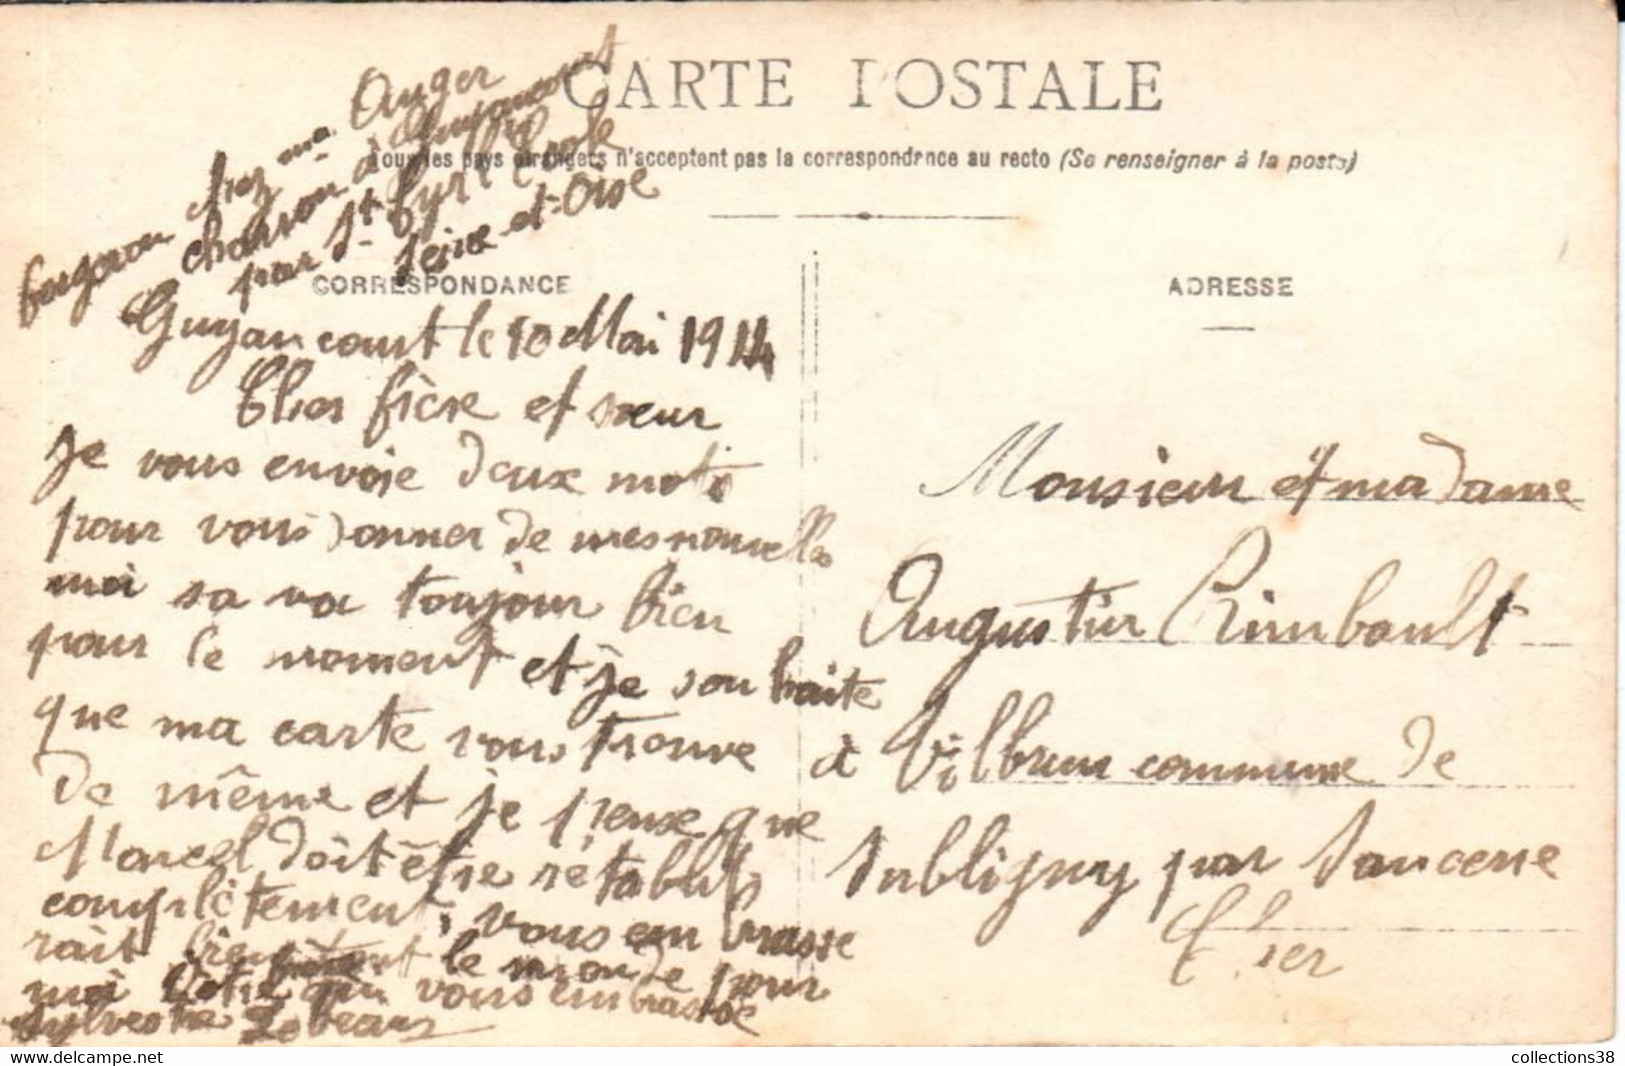 CARTE POSTALE
Tous les pays étrangers n'acceptent pas la correspondance au recto (Se renseigner à la poste)
chez me Auger
charron à Guyancourt
par St Cyr l'École
Seine-et-Oise
CORRESPONDANCE
Guyancourt le 10 Mai 1914
Cher frère et sœur
je vous envoie deux mots
pour vous donner de mes nouvelles
moi sa va toujour bien
pour le moment et je souhaite
que ma carte vous trouve
de même et je pense que
Marcel doit être rétabli
complètement, vous embrasse
rait bien le monde pour
moi qui vous embrasse
Sylvestre
ADRESSE
Monsieur et madame
Augustin Rimbault
à Vilbrun commune de
Subligny par Sancerre
Cher
collections38